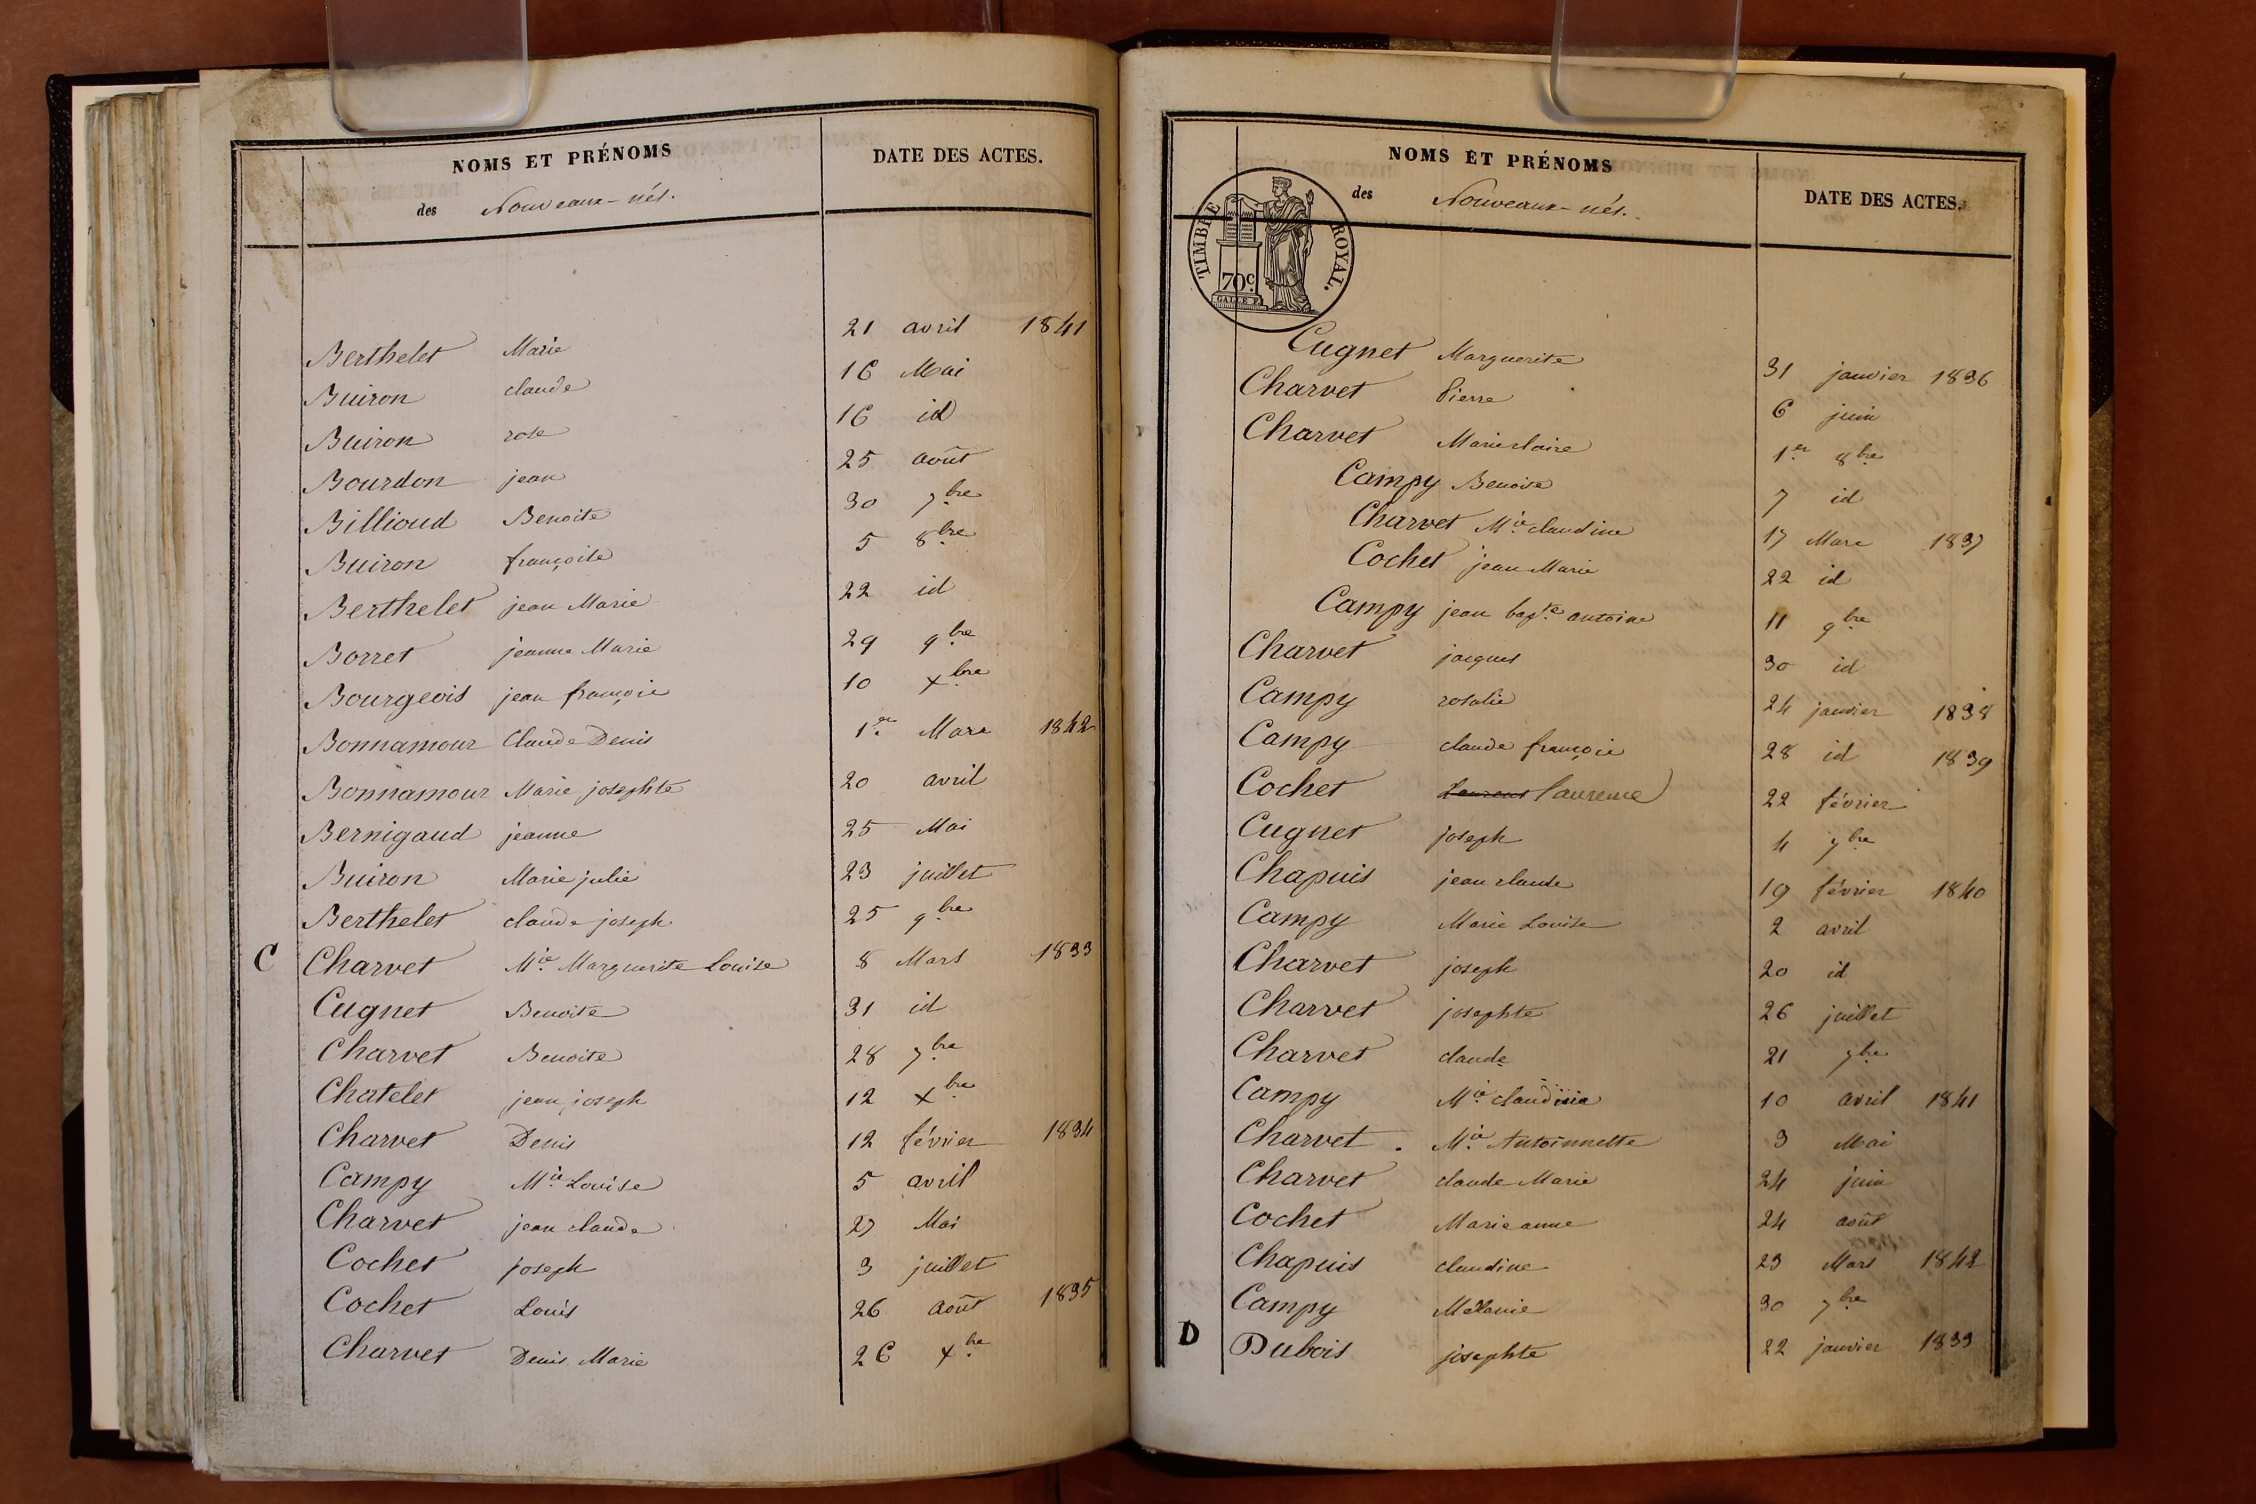 NOMS ET PRÉNOMS DATE DES ACTES.
des Nouveaux-nés.
Berthelet Marie 21 avril 1841
Buiron claude 16 Mai
Buiron rose 16 id
Bourdon jean 25 août
Billioud Benoite 30 7bre
Buiron françoise 5 8bre
Berthelet jean Marie 22 id
Borret jeanne Marie 29 9bre
Bourgeois jean françois 10 xbre
Bonnamour Claude Denis 1er Mars 1842
Bonnamour Marie josephte 20 avril
Bernigaud jeanne 25 Mai
Buiron Marie julie 23 juillet
Berthelet claude joseph 25 9bre
C Charvet Mie Marguerite Louise 8 Mars 1833
Cugnet Benoite 31 id
Charvet Benoite 28 7bre
Chatelet jean joseph 12 xbre
Charvet Denis 12 février 1834
Campy Mie Louise 5 avril
Charvet jean claude 27 Mai
Cochet joseph 3 juillet
Cochet Louis 26 août 1835
Charvet Denis Marie 26 xbre
NOMS ET PRÉNOMS
des Nouveaux-nés. DATE DES ACTES.
TIMBRE ROYAL.
70c
Cugnet Marguerite 31 janvier 1836
Charvet Pierre 6 juin
Charvet Marie claire 1er 8bre
Campy Benoise 7 id
Charvet Mie claudine 17 Mars 1837
Cochet jean Marie 22 id
Campy jean bapte antoine 11 9bre
Charvet jacques 30 id
Campy rosalie 24 janvier 1838
Campy claude françois 28 id 1839
Cochet Laurent laurence 22 février
Cugnet joseph 4 7bre
Chapuis jean claude 19 février 1840
Campy Marie Louise 2 avril
Charvet joseph 20 id
Charvet josephte 26 juillet
Charvet claude 21 7bre
Campy Mie claudine 10 avril 1841
Charvet Mie Antoinnette 3 Mai
Charvet claude Marie 24 juin
Cochet Marie anne 24 août
Chapuis claudine 23 Mars 1842
Campy Mélanie 30 7bre
D Dubois josephte 22 janvier 1833